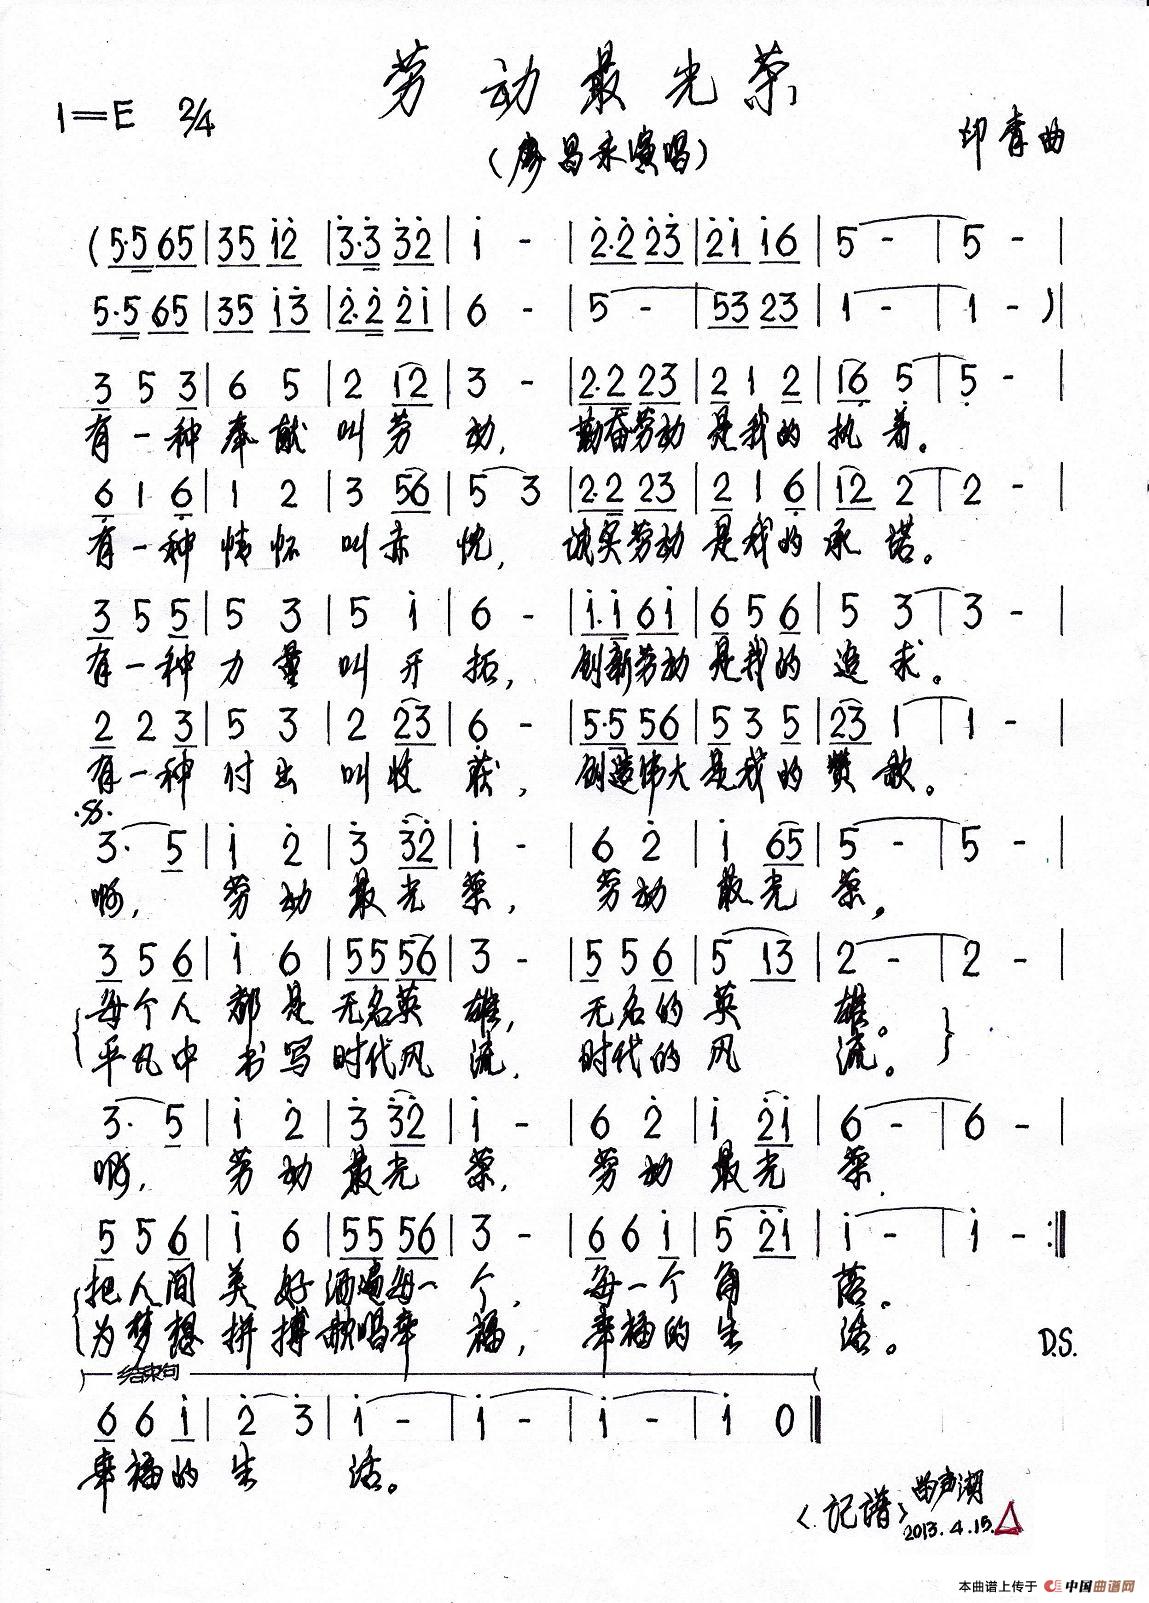 劳动最光荣
1=E 2/4
(廖昌永演唱)
印青曲
(5·5 65|35 12|3·3 32|1 -|2·2 23|21 16|5 -|5 -|
5·5 65|35 13|2·2 21|6 -|5 -|53 23|1 -|1 -)|
3 5 3|6 5|2 12|3 -|2·2 23|2 1 2|16 5|5 -|
有一种奉献叫劳动,勤奋劳动是我的执着。
6 1 6|1 2|3 56|5 3|2·2 23|2 1 6|12 2|2 -|
有一种情怀叫赤忱,诚实劳动是我的承诺。
3 5 5|5 3|5 1|6 -|1·1 61|6 5 6|5 3|3 -|
有一种力量叫开拓,创新劳动是我的追求。
2 2 3|5 3|2 23|6 -|5·5 56|5 3 5|23 1|1 -|
有一种付出叫收获,创造伟大是我的赞歌。
3· 5|1 2|3 32|1 -|6 2|1 65|5 -|5 -|
啊,劳动最光荣,劳动最光荣,
3 5 6|1 6|55 56|3 -|5 5 6|5 13|2 -|2 -|
每个人都是无名英雄,无名的英雄。
平凡中书写时代风流,时代的风流。
3· 5|1 2|3 32|1 -|6 2|1 21|6 -|6 -|
啊,劳动最光荣,劳动最光荣.
5 5 6|1 6|55 56|3 -|6 6 1|5 21|1 -|1 -:|
把人间美好洒遍每一个,每一个角落。
为梦想拼搏歌唱幸福,幸福的生活。
D.S.
结束句
6 6 1|2 3|1 -|1 -|1 -|1 0|
幸福的生活。
〈记谱〉曲声湖
2013.4.15.
本曲谱上传于 中国曲谱网